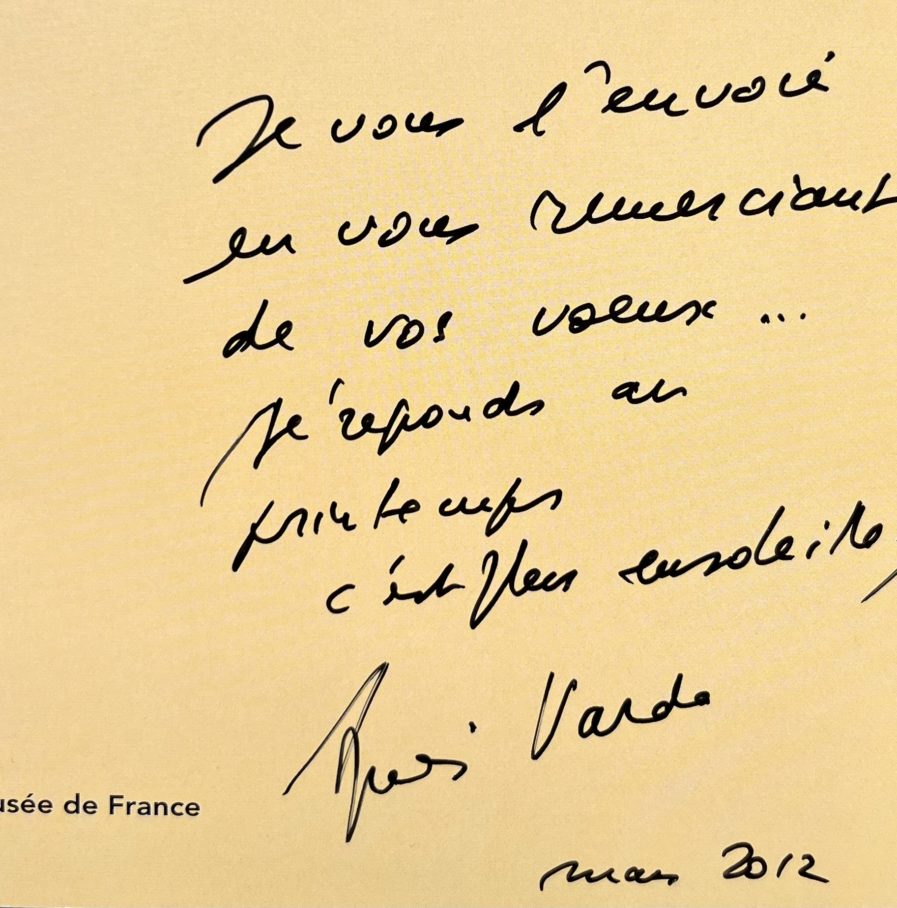 Je vous l'envoie
en vous remerciant
de vos voeux ...
Je réponds au
printemps
c'est plus ensoleillé
Agnès Varda
usée de France
mars 2012